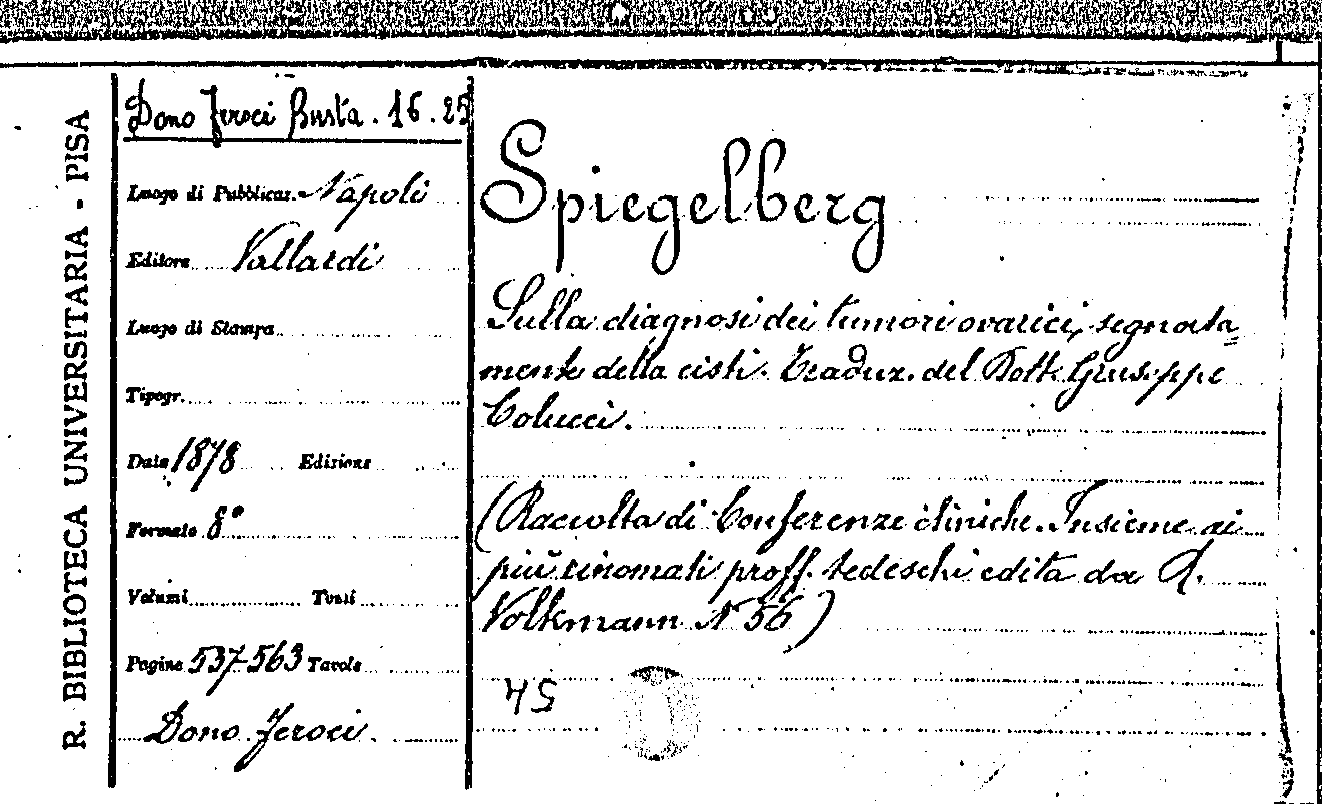 R. BIBLIOTECA UNIVERSITARIA - PISA
Dono Feroci Busta. 16. 25
Luogo di Pubblicaz. Napoli
Editore Vallardi
Luogo di Stampa
Tipogr.
Data 1878 Edizione
Formato 8°
Volumi Tomi
Pagine 537-563 Tavole
Dono Feroci.
Spiegelberg
Sulla diagnosi dei tumori ovarici, segnata=
mente della cisti. Traduz. del Dott. Giuseppe
Colucci.
(Raccolta di Conferenze cliniche. Insieme ai
più rinomati proff. tedeschi edita da R.
Volkmann N 56)